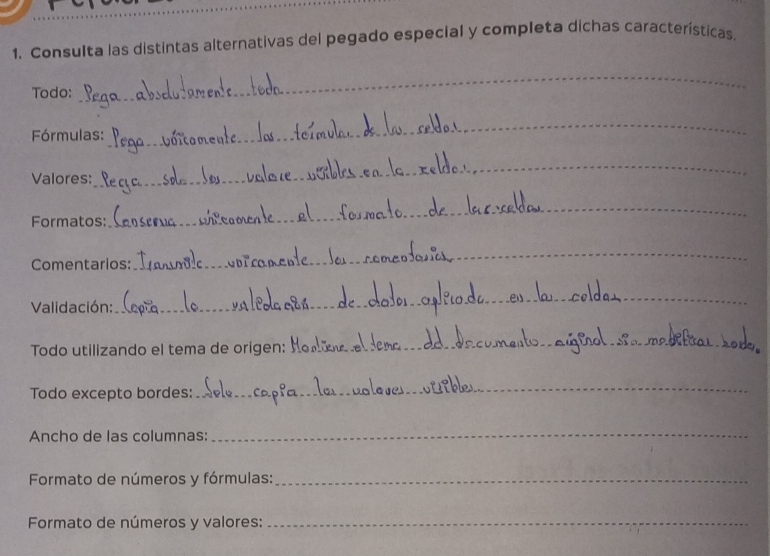 1. Consulta las distintas alternativas del pegado especial y completa dichas características.
Todo: Pega absolutamente todo
Fórmulas: Pega únicamente las fórmulas de las celdas
Valores: Pega solo los valore visibles en la celdas
Formatos: Conserva únicamente el formato de las celdas
Comentarios: Transmite únicamente los comentarios
Validación: Copia la validación de datos aplicada en las celdas
Todo utilizando el tema de origen: Mantiene el tema del documento original sin modificar nada.
Todo excepto bordes: Solo copia los valores visibles
Ancho de las columnas:
Formato de números y fórmulas:
Formato de números y valores: